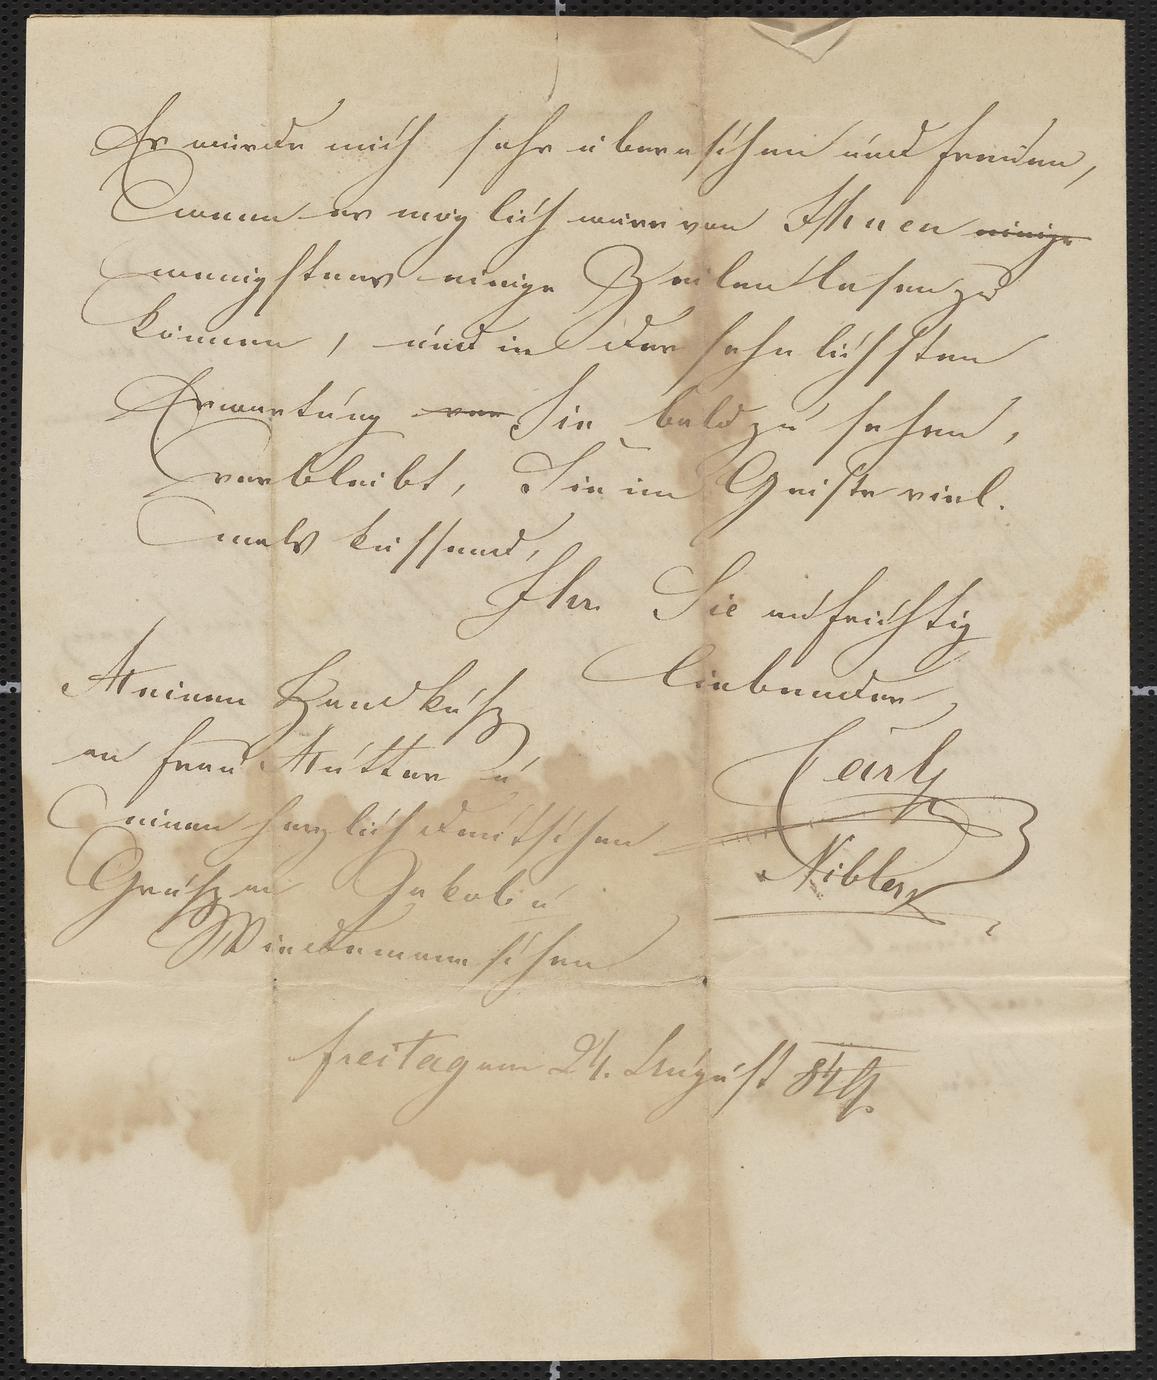 Es würde mich sehr überraschen und freuen,
wenn es möglich wäre von Ihnen einige
wenigstens einige Zeilen lesen zu
können, und in der sehnlichsten
Erwartung Sie bald zu sehen,
verbleibt, Sie im Geiste viel-
mals küssend,
Ihr Sie aufrichtig
liebender
Carl
Nibler
Meinen Handkuß
an Frau Mutter u
einen herzlich deutschen
Gruß an Jakobi u
Wiedemannschen
Freitag am 24. August 849.